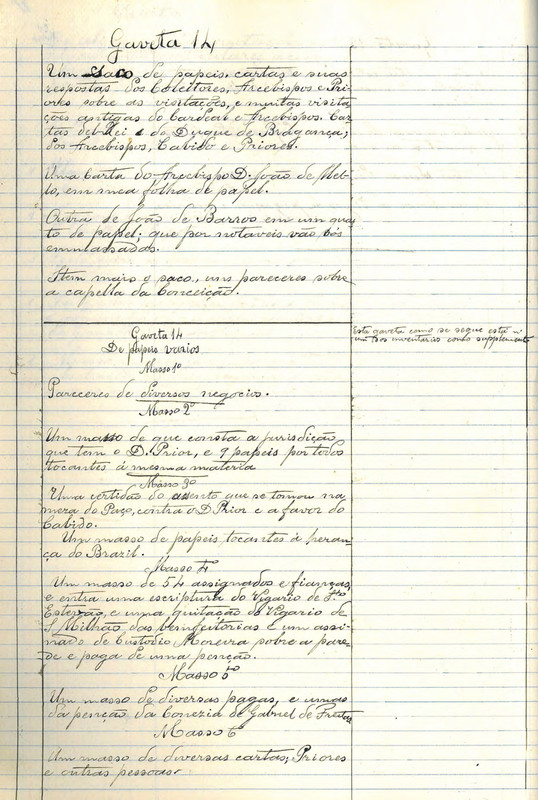 Gaveta 14
Um saco de papeis, cartas e suas
respostas dos Colleitores, Arcebispos e Pri-
ores sobre as visitações, e muitas visita-
ções antigas do Cardeal e Arcebispos. Car
tas del Rei e do Duque de Bragança;
dos Arcebispos, Cabido e Priores.
Uma carta do Arcebispo D. João de Mel-
lo, em mea folha de papel.
Outra de João de Barros em um quar
to de papel; que por notaveis vão
emmassadas.
Item mais o saco, uns pareceres sobre
a capella da Conceição.
Gaveta 14
De papeis varios
Masso 1º
Esta gaveta como se segue está n'
um dos inventarios como supplemento
Pareceres de diversos negocios.
Masso 2º
Um masso de que consta a jurisdição
que tem o D. Prior, e 9 papeis por todos
tocantes á mesma materia
Masso 3º
Uma certidão do assento que se tomou na
meza do Paço, contra o D Prior e a favor do
Cabido.
Um masso de papeis, tocantes á heran
ça do Brazil.
Masso 4º
Um masso de 54 assignados e fianças,
e entra uma escriptura do Vigario de Sto
Estevão, e uma quitação do Vigario de
S. Milhão das bemfeitorias e um assi-
nado de Custodio Moreira sobre a pare-
de e paga de uma penção.
Masso 5º
Um masso de diversas pagas, e umas
da penção da Conezia de Gabriel de Freitas
Masso 6º
Um masso de diversas cartas; Priores
e outras pessoas